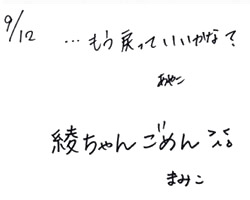 9/12
…もう戻っていいかな?
あやこ
綾ちゃんごめん
まみこ